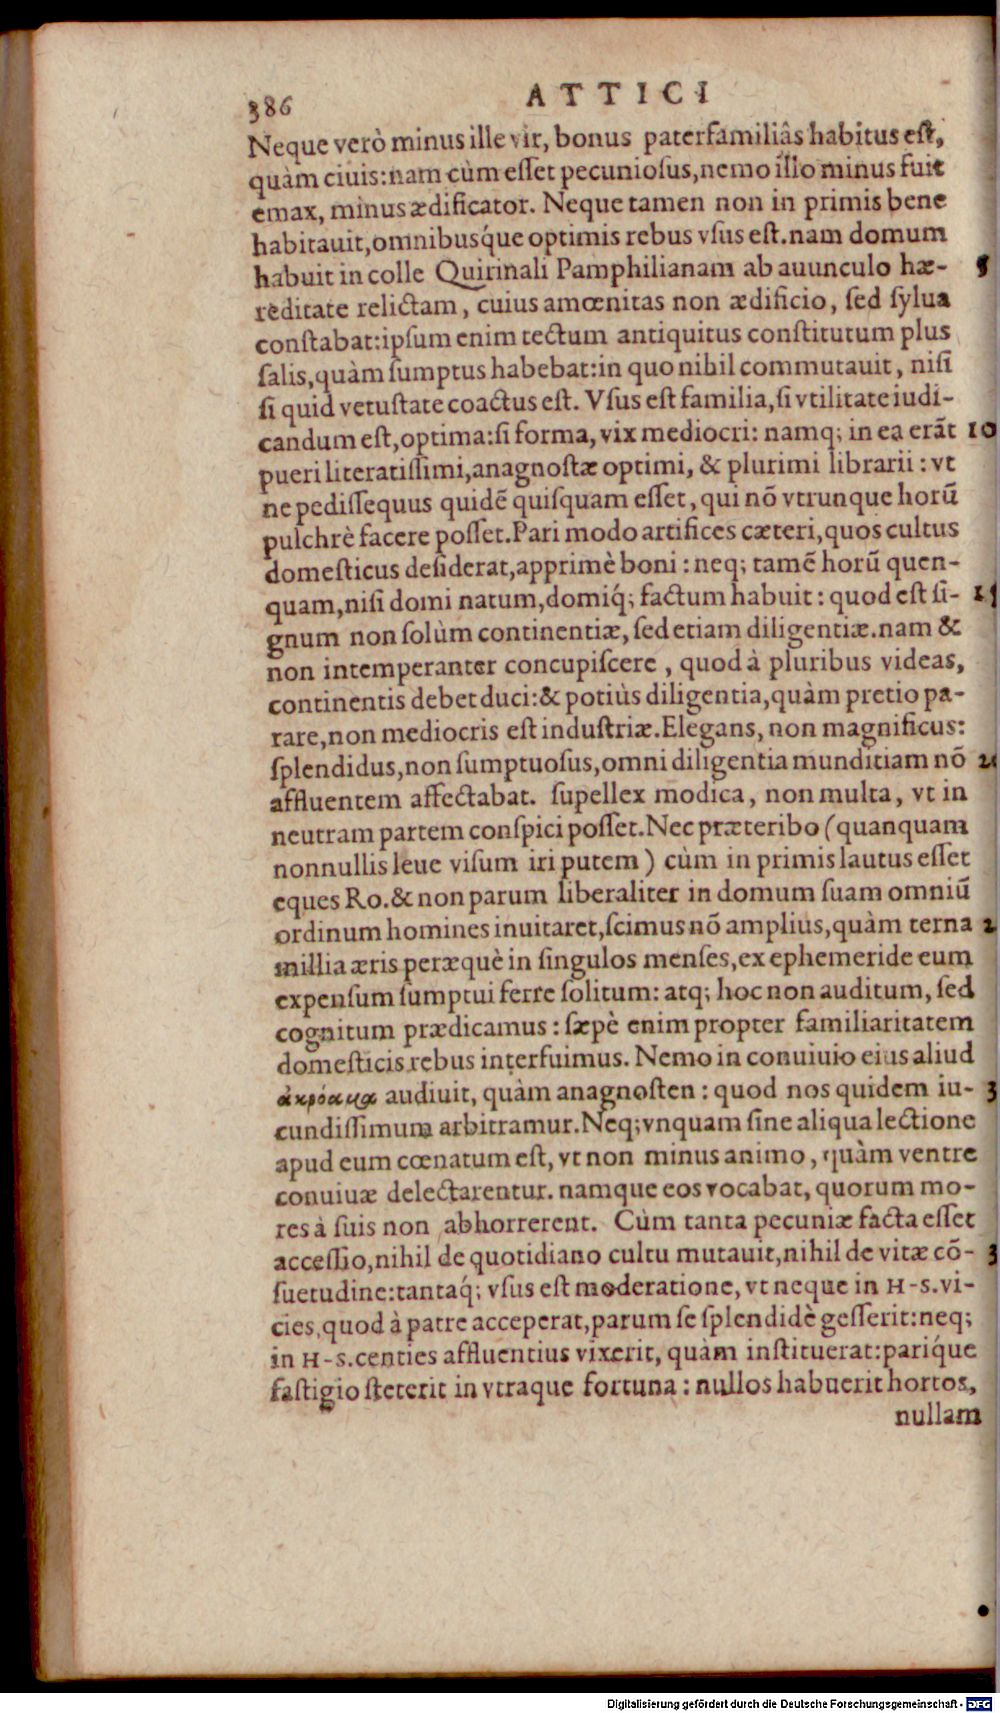 386 ATTICI
Neque verò minus ille vir, bonus paterfamiliâs habitus eſt,
quàm ciuis: nam cùm eſſet pecunioſus, nemo illo minus fuit
emax, minus ædificator. Neque tamen non in primis bene
habitauit, omnibusq́ue optimis rebus vſus eſt. nam domum
habuit in colle Quirinali Pamphilianam ab auunculo hæ- 5
reditate relictam, cuius amœnitas non ædificio, ſed ſylua
conſtabat: ipſum enim tectum antiquitus conſtitutum plus
ſalis, quàm ſumptus habebat: in quo nihil commutauit, niſi
ſi quid vetuſtate coactus eſt. Vſus eſt familia, ſi vtilitate iudi-
candum eſt, optima: ſi forma, vix mediocri: namq; in ea erãt 10
pueri literatiſſimi, anagnoſtæ optimi, & plurimi librarii: vt
ne pediſſequus quidẽ quiſquam eſſet, qui nõ vtrunque horũ
pulchrè facere poſſet. Pari modo artifices cæteri, quos cultus
domeſticus deſiderat, apprimè boni: neq; tamẽ horũ quen-
quam, niſi domi natum, domiq́; factum habuit: quod eſt ſi- 15
gnum non ſolùm continentiæ, ſed etiam diligentiæ. nam &
non intemperanter concupiſcere, quod à pluribus videas,
continentis debet duci: & potiùs diligentia, quàm pretio pa-
rare, non mediocris eſt induſtriæ. Elegans, non magnificus:
ſplendidus, non ſumptuoſus, omni diligentia munditiam nõ 20
affluentem affectabat. ſupellex modica, non multa, vt in
neutram partem conſpici poſſet. Nec præteribo (quanquam
nonnullis leue viſum iri putem) cùm in primis lautus eſſet
eques Ro. & non parum liberaliter in domum ſuam omniũ
ordinum homines inuitaret, ſcimus nõ amplius, quàm terna 2
millia æris peræquè in ſingulos menſes, ex ephemeride eum
expenſum ſumptui ferre ſolitum: atq; hoc non auditum, ſed
cognitum prædicamus: ſæpè enim propter familiaritatem
domeſticis rebus interfuimus. Nemo in conuiuio eius aliud
ἀκρόαμα audiuit, quàm anagnoſten: quod nos quidem iu- 3
cundiſſimum arbitramur. Neq; vnquam ſine aliqua lectione
apud eum cœnatum eſt, vt non minus animo, quàm ventre
conuiuæ delectarentur. namque eos vocabat, quorum mo-
res à ſuis non abhorrerent. Cùm tanta pecuniæ facta eſſet
acceſſio, nihil de quotidiano cultu mutauit, nihil de vitæ cõ- 3
ſuetudine: tantaq́; vſus eſt moderatione, vt neque in H-S. vi-
cies, quod à patre acceperat, parum ſe ſplendidè geſſerit: neq;
in H-S. centies affluentius vixerit, quàm inſtituerat: pariq́ue
faſtigio ſteterit in vtraque fortuna: nullos habuerit hortos,
nullam
Digitalisierung gefördert durch die Deutsche Forschungsgemeinschaft - DFG